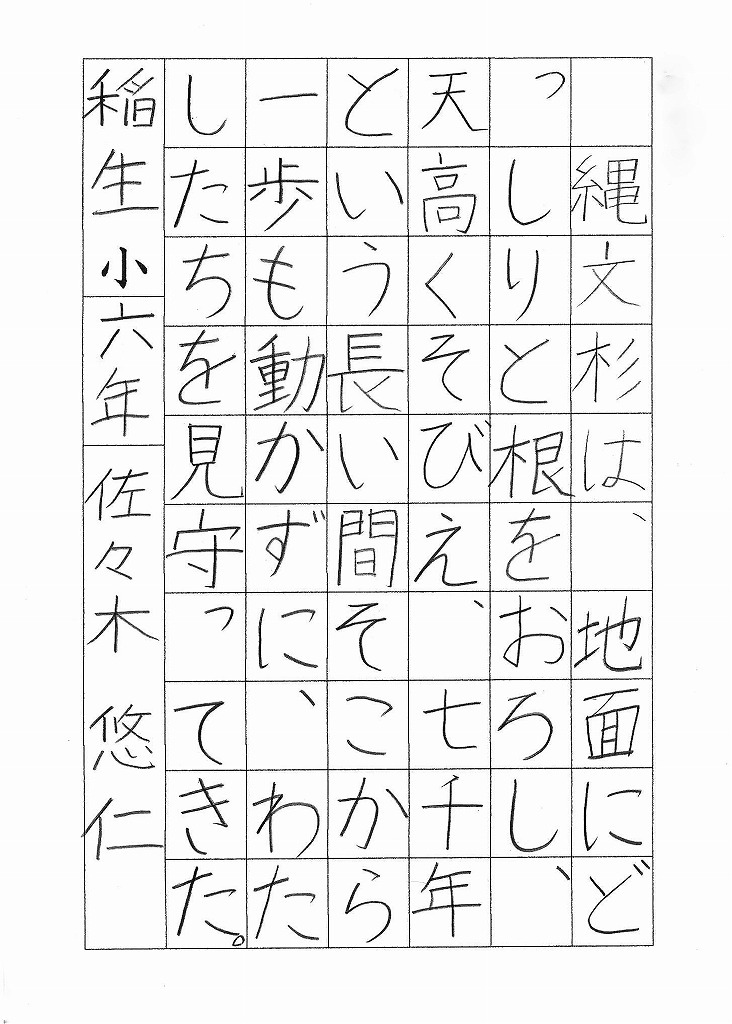 縄文杉は、地面にど
っしりと根をおろし、
天高くそびえ、七千年
という長い間そこから
一歩も動かずに、わた
したちを見守ってきた。
稲生小六年 佐々木 悠仁